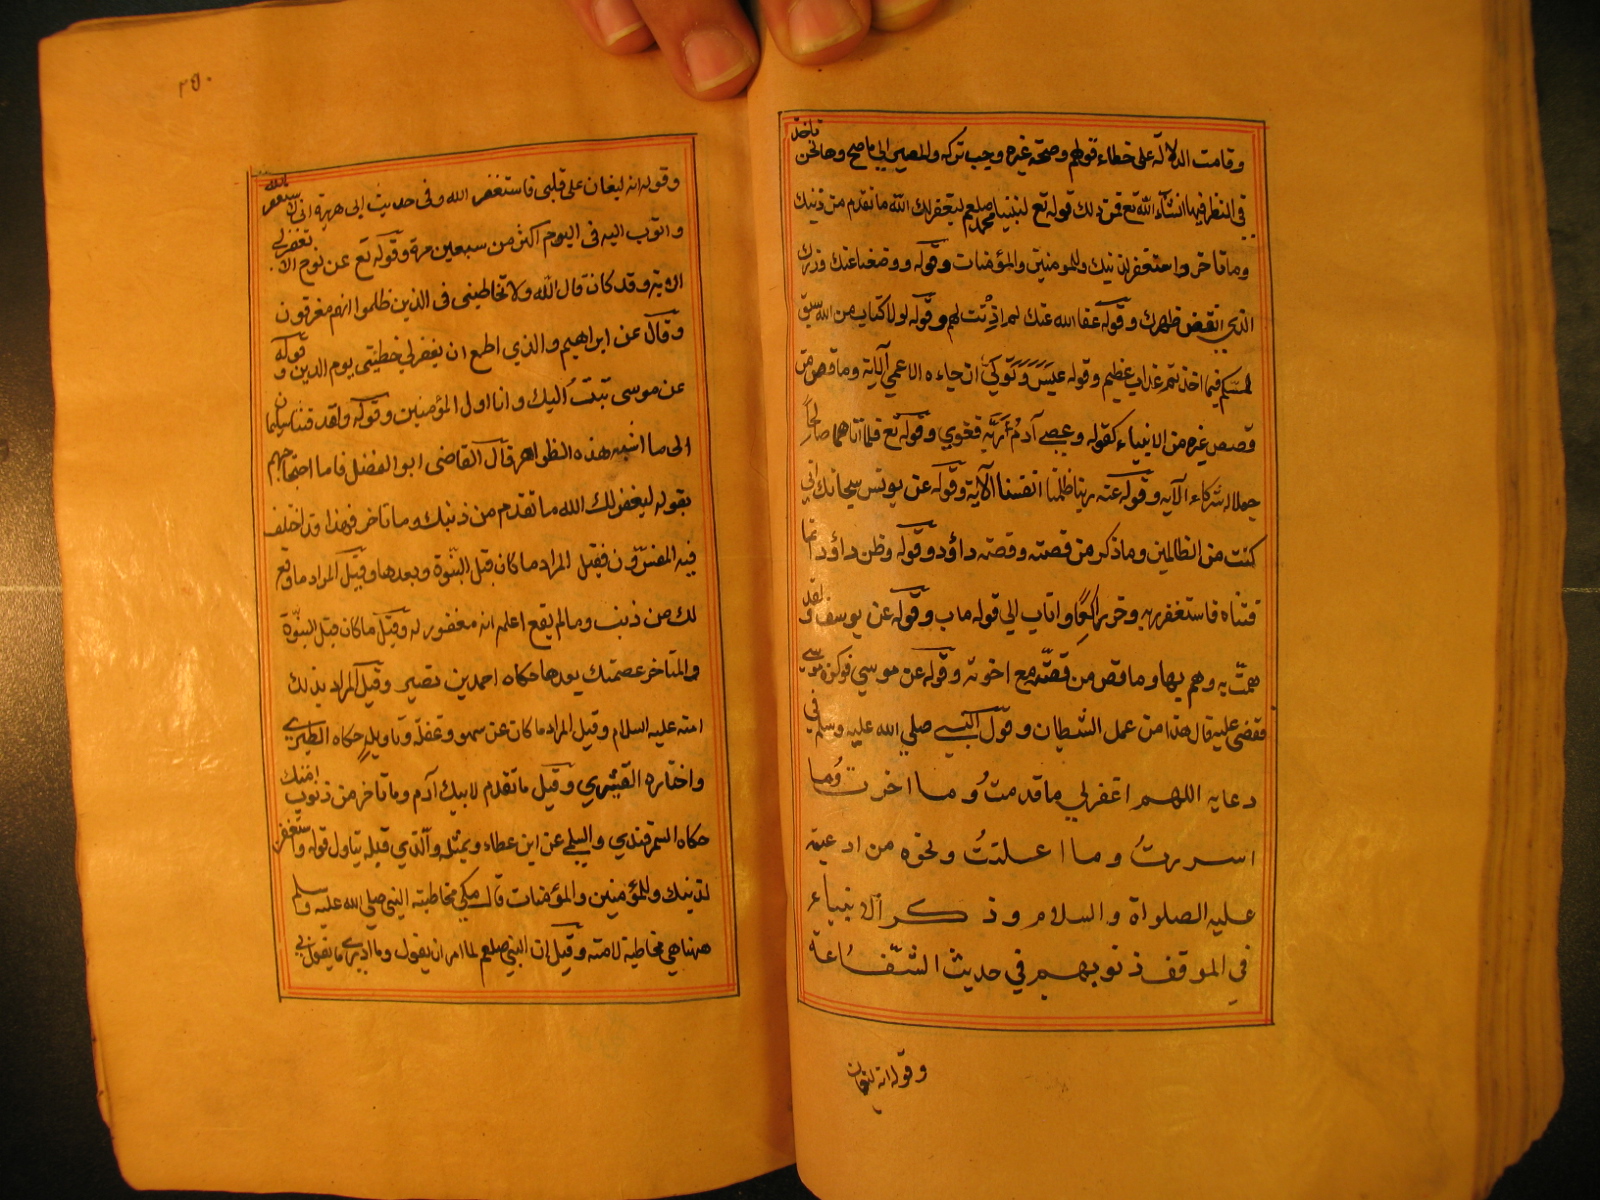 وقامت الدلالة على خطاء قولهم وصحة غيره وجب تركه والمصير الى ما صح وها نحن ناخذ
في النظر فيها انشاء الله تع فمن ذلك قوله تع لنبينا محمد صلعم ليغفر لك الله ما تقدم من ذنبك
وما تاخر واستغفر لذنبك وللمومنين والمؤمنات وقوله ووضعنا عنك وزرك
الذي انقض ظهرك وقوله عفا الله عنك لم اذنت لهم وقوله لولا كتاب من الله سبق
لمسكم فيما اخذتم عذاب عظيم وقوله عبس وتولي ان جاءه الاعمي الآية وما قص من
قصص غيره من الانبياء كقوله وعصي آدم ربه فغوي وقوله تع فلما اتاهما صالحًا
جعلا له شركاء الآيه وقوله عنه ربنا ظلمنا انفسنا الآية وقوله عن يونس سبحانك اني
كنت من الظالمين وما ذكر من قصته وقصة داؤد وقوله وظن داؤد انما
فتناه فاستغفر ربه وخر راكعًا واناب الي قوله ماب وقوله عن يوسف ولقد
همت به وهم بها وما قص من قصته مع اخوته وقوله عن موسي فوكزه موسي
فقضي عليه قال هذا من عمل الشيطان وقول النبي صلي الله عليه وسلم في
دعايه اللهم اغفرلي ما قدمت وما اخرت وما
اسررت وما اعلنت ونحوه من ادعيته
عليه الصلواة والسلام وذكر الانبياء
في الموقف ذنوبهم في حديث الشفاعة
وقوله انه ليغان
٢٥٠
وقوله انه ليغان على قلبي فاستغفر الله وفى حديث ابى هريرة انى لاستغفر الله
واتوب اليه فى اليوم اكثر من سبعين مرة وقوله تع عن نوح الا تغفرلي
الاية وقد كان قال الله ولا تخاطبنى فى الذين ظلموا انهم مغرقون
وقال عن ابراهيم والذي اطمع ان يغفر لي خطيئتى يوم الدين وقوله
عن موسى تبت اليك وانا اول المؤمنين وقوله ولقد فتنا سليمان
الى ما اشبه هذه الظواهر قال القاضى ابو الفضل فاما احتجاجهم
بقوله ليغفر لك الله ما تقدم من ذنبك وما تاخر فهذا قد اختلف
فيه المفسرون فقيل المراد ما كان قبل النبوة وبعدها وقيل المراد ما وقع
لك من ذنب وما لم يقع اعلمه انه مغفور له وقيل ما كان قبل النبوة
والمتاخر عصمتك بعدها حكاه احمد بن نصير وقيل المراد بذلك
امته عليه السلام وقيل المراد ما كان عن سهو وغفلة وتاويل حكاه الطبري
واختاره القشيري وقيل ما تقدم لابيك آدم وما تاخر من ذنوب امتك
حكاه السمرقندي والسلمي عن ابن عطاء وبمثله والذي قبله يتاول قوله واستغفر
لذنبك وللمؤمنين والمؤمنات قال مكي مخاطبة النبي صلي الله عليه وسلم
ههنا هي مخاطبة لامته وقيل ان النبي صلعم لما امر ان يقول وما ادري ما يفعل بي